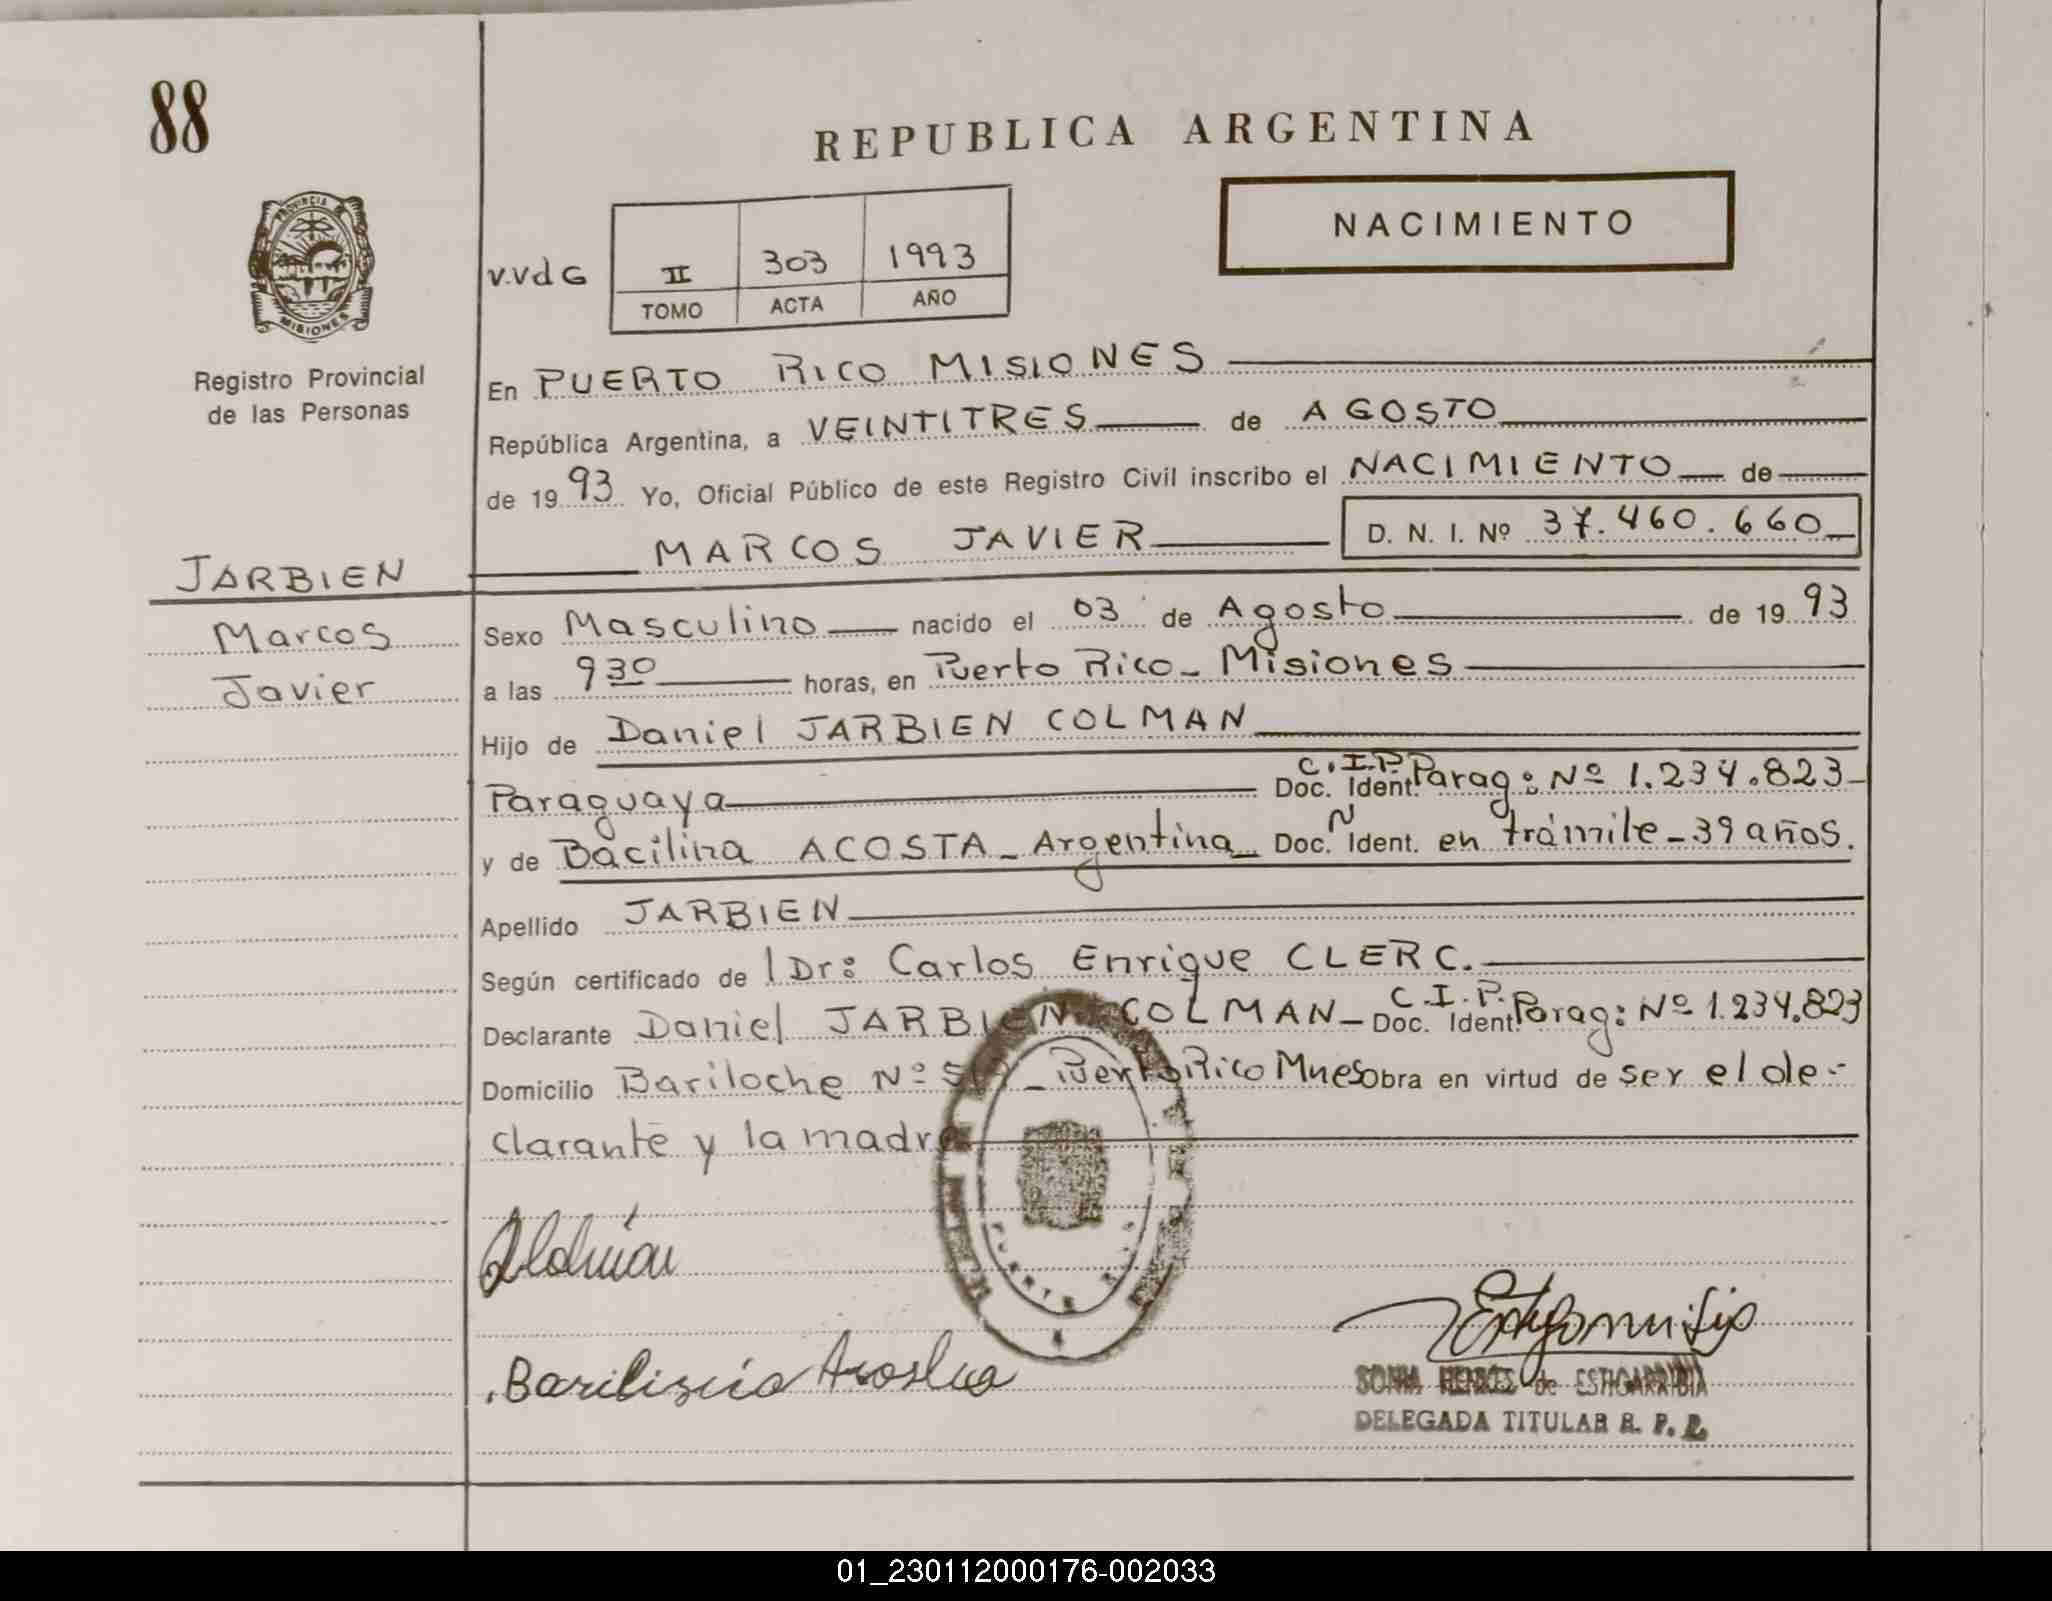 88
REPUBLICA ARGENTINA
NACIMIENTO
PROVINCIA DE
MISIONES
V.VdG
II 303 1993
TOMO ACTA AÑO
Registro Provincial
de las Personas
En PUERTO RICO MISIONES
República Argentina, a VEINTITRES de AGOSTO
de 1993 Yo, Oficial Público de este Registro Civil inscribo el NACIMIENTO de
MARCOS JAVIER D. N. I. Nº 37.460.660
JARBIEN
Marcos
Javier
Sexo Masculino nacido el 03 de Agosto de 1993
a las 930 horas, en Puerto Rico - Misiones
Hijo de Daniel JARBIEN COLMAN
Paraguaya Doc. Ident. C.I.P. Parag: Nº 1.234.823
y de Bacilina ACOSTA - Argentina - Doc. N Ident. en trámite - 39 años.
Apellido JARBIEN
Según certificado de l Dr: Carlos Enrique CLERC.
Declarante Daniel JARBIEN COLMAN - Doc. Ident C.I.P. Parag: Nº 1.234.823
Domicilio Bariloche Nº - Puerto Rico Mnes Obra en virtud de ser el de-
clarante y la madre
SONIA de ESTIGARRIBIA
DELEGADA TITULAR R. P. P.
01_230112000176-002033